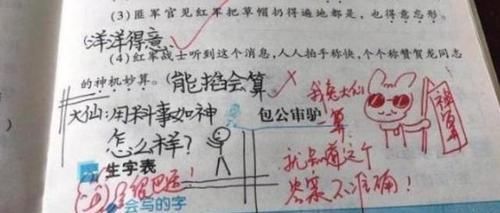 (3) 匪军官见红军把草帽扔得遍地都是，也得意忘形。
洋洋得意
(4) 红军战士听到这个消息，人人拍手称快，个个称赞贺龙同志
的神机妙算。(能掐会算)
大仙:用料事如神
怎么样？
我兔大仙
一算
神算
包公审驴
就知道这个
答案不准确！
生字表
会写的字